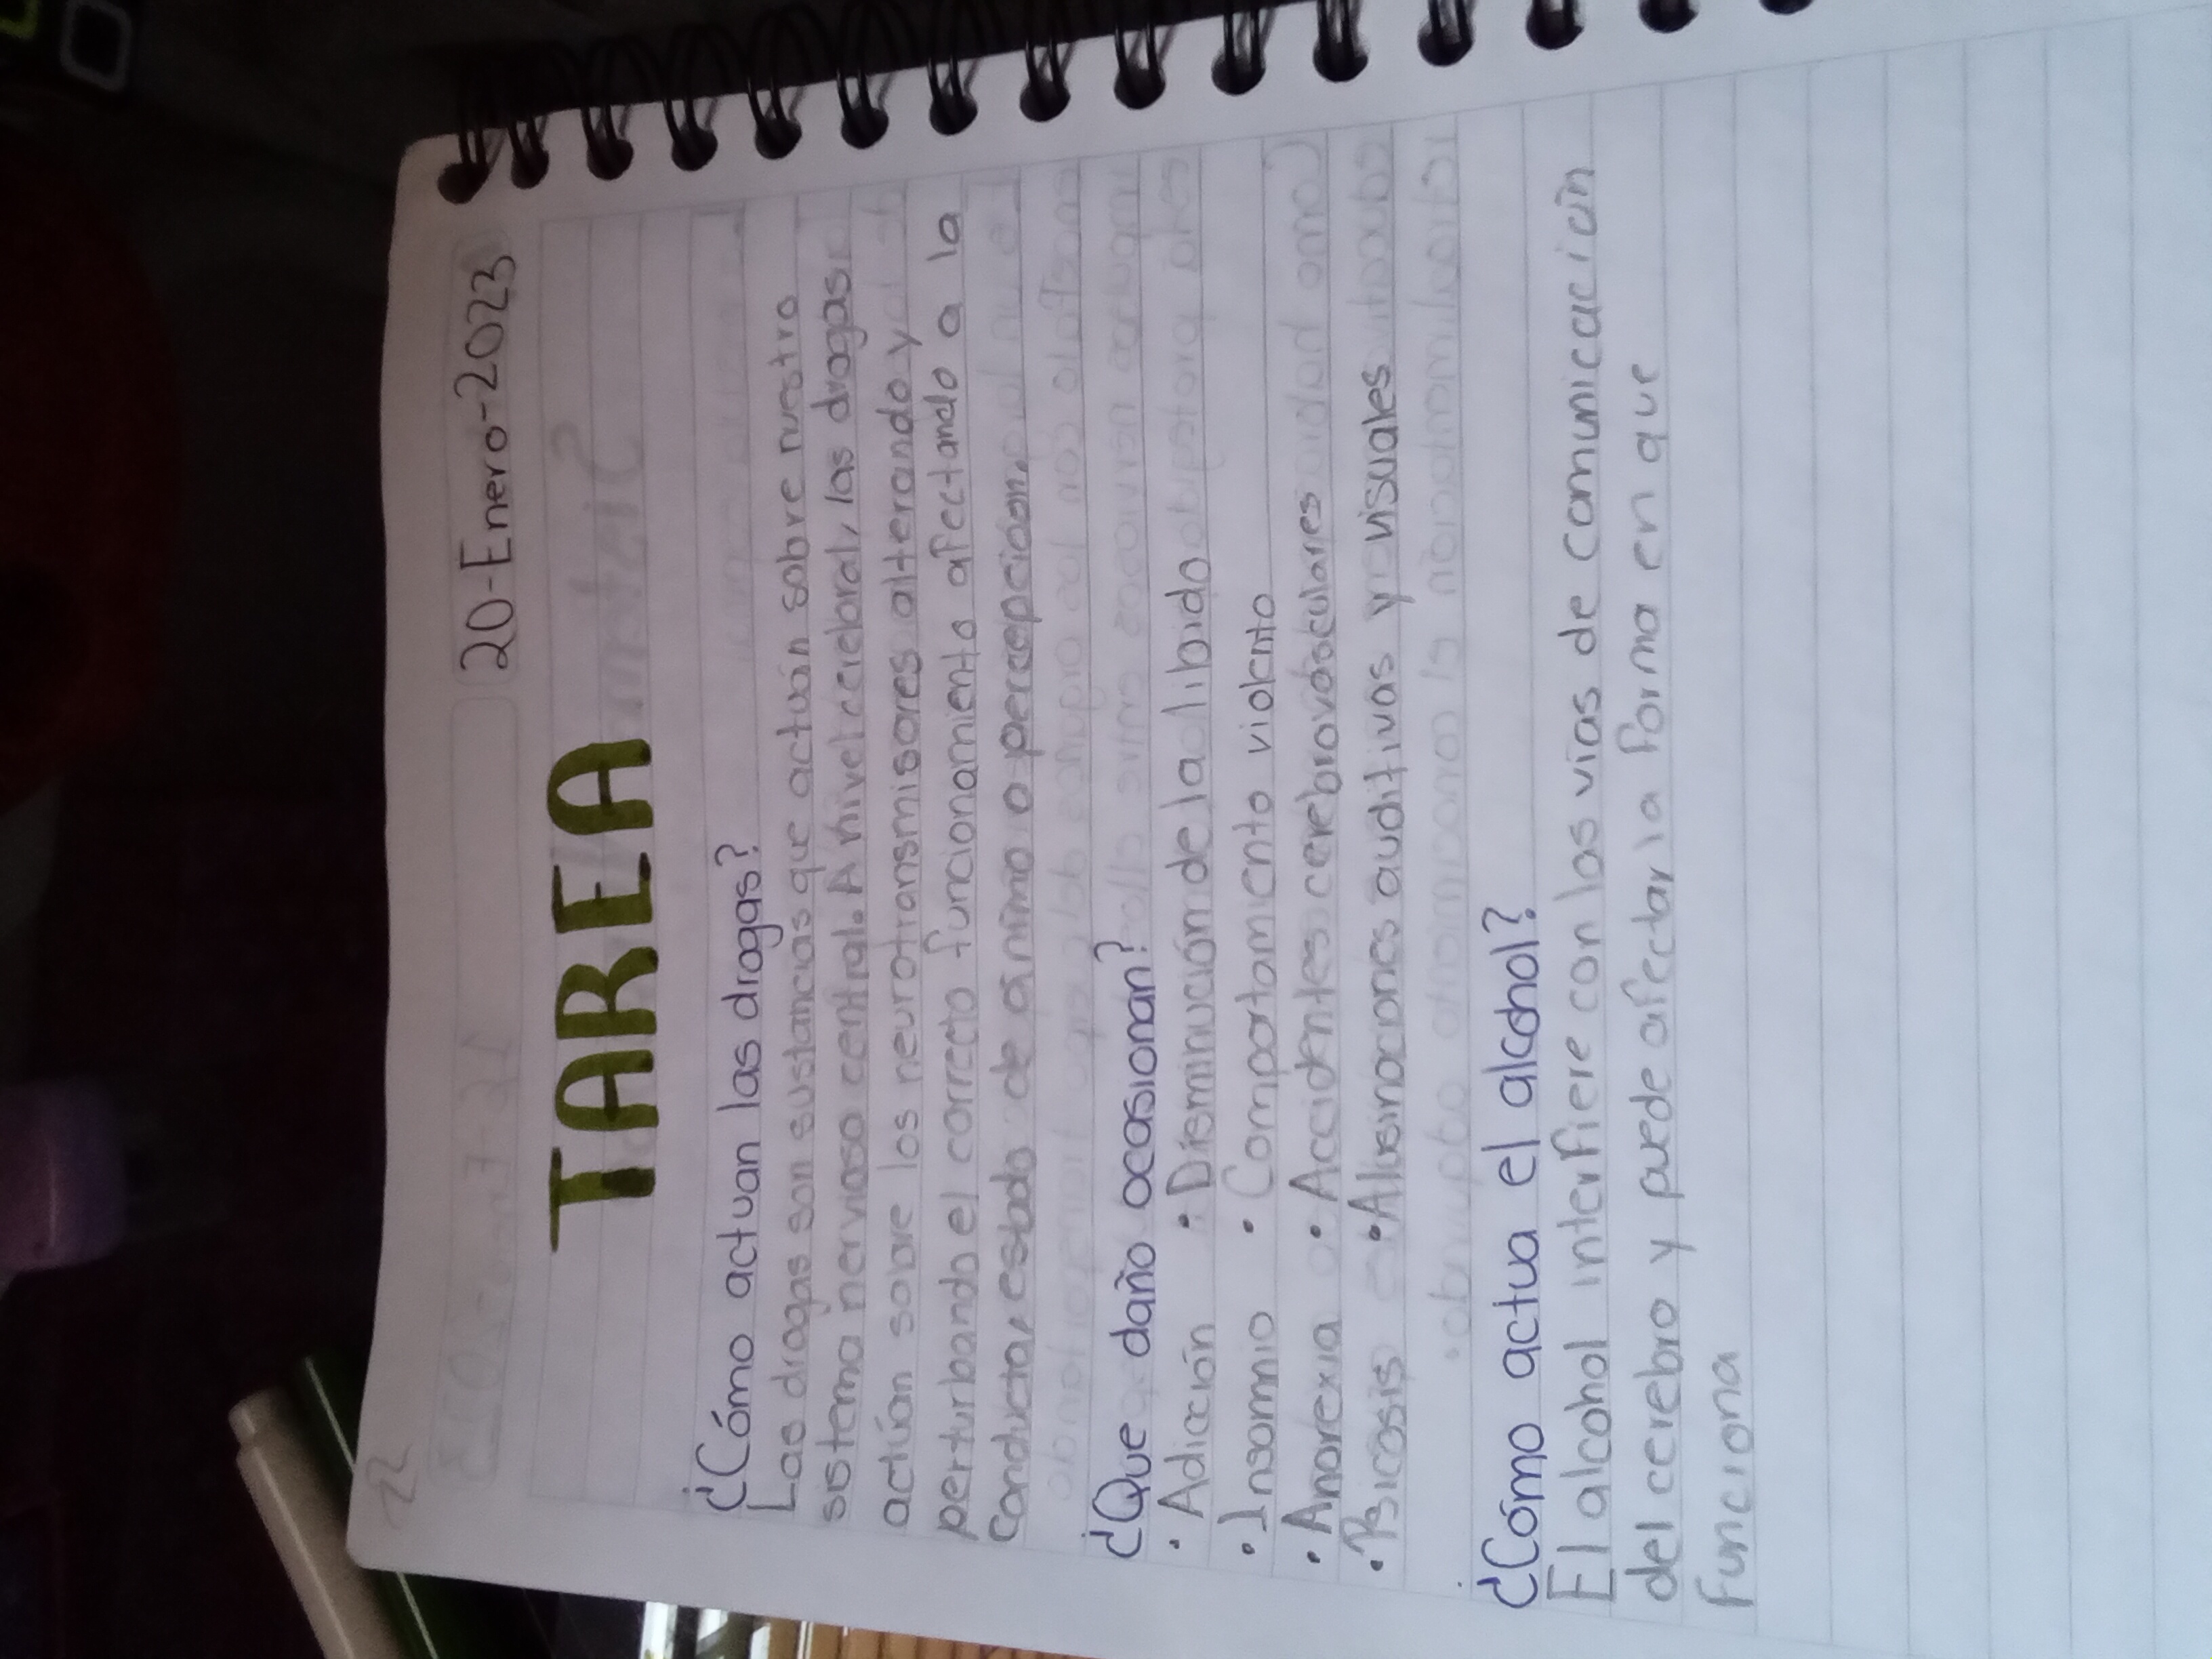 20-Enero-2023
TAREA
¿Cómo actuan las drogas?
Las drogas son sustancias que actuán sobre nuestro
sistema nervioso central. A nivel cerebral, las drogas
actúan sobre los neurotransmisores alterando y
perturbando el correcto funcionamiento afectando a la
conducta, estado de ánimo o percepcion.
¿Que daño ocasionan?
• Adicción • Disminución de la libido
• Insomnio • Comportamiento violento
• Anorexia • Accidentes cerebrovasculares
• Psicosis • Alusinaciones auditivas y visuales
¿Cómo actua el alcohol?
El alcohol interfiere con las vías de comunicación
del cerebro y puede afectar la forma en que
funciona